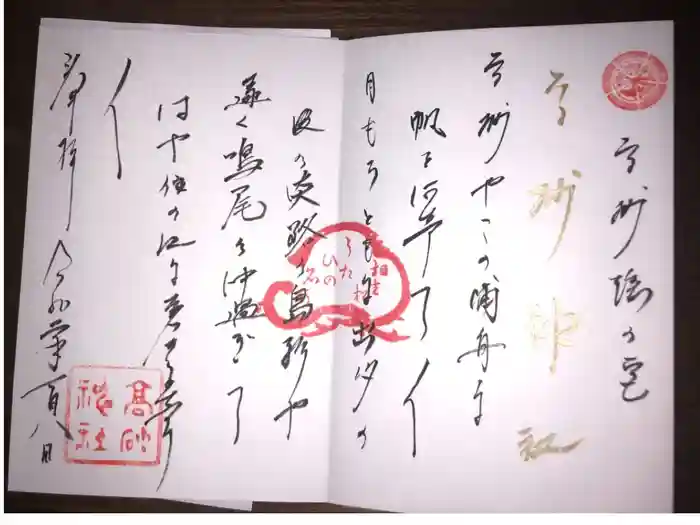 高砂謡の宮
高砂神社
高砂やこの浦舟に
帆を阿げて 〱
月もろともに出汐の
波の淡路の島影や
遠く鳴尾の沖過ぎて
はや住の江に着きにけり
〱
奉拝
高砂
神社
相生
うた
ひの